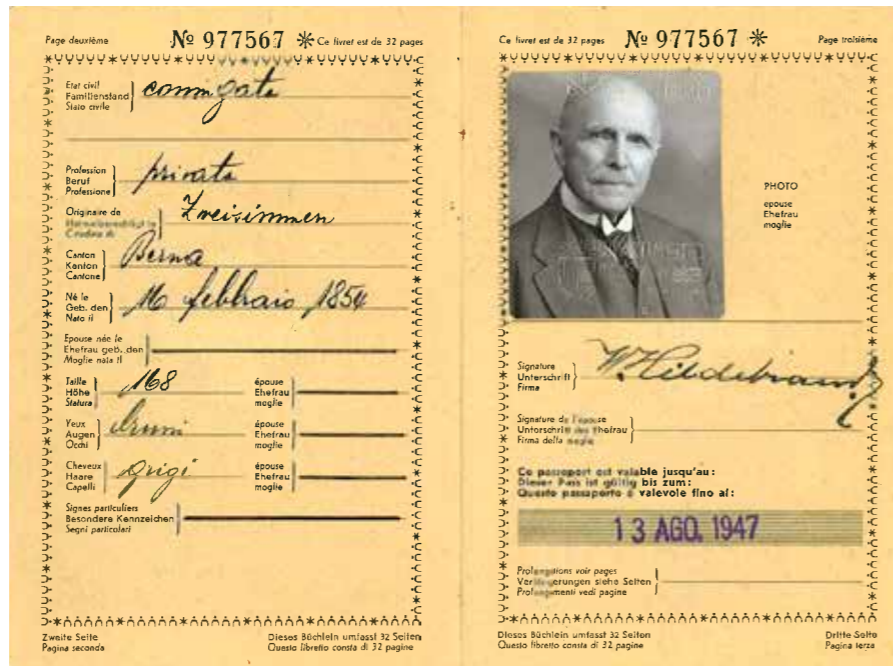 Page deuxième
№ 977567
Ce livret est de 32 pages
Etat civil
Familienstand
Stato civile
coniugato
Profession
Beruf
Professione
privato
Originaire de
Zweisimmen
Canton
Kanton
Cantone
Berna
Né le
Geb. den
Nato il
16 febbraio 1854
Epouse née le
Ehefrau geb. den
Moglie nata il
Taille
Höhe
Statura
168
épouse
Ehefrau
moglie
Yeux
Augen
Occhi
bruni
épouse
Ehefrau
moglie
Cheveux
Haare
Capelli
grigi
épouse
Ehefrau
moglie
Signes particuliers
Besondere Kennzeichen
Segni particolari
Zweite Seite
Pagina seconda
Dieses Büchlein umfasst 32 Seiten
Questo libretto consta di 32 pagine
Ce livret est de 32 pages
№ 977567
Page troisième
PHOTO
épouse
Ehefrau
moglie
Signature
Unterschrift
Firma
W. Hildebrand
Signature de l'épouse
Unterschrift der Ehefrau
Firma della moglie
Ce passeport est valable jusqu'au:
Dieser Pass ist gültig bis zum:
Questo passaporto è valevole fino al:
13 AGO. 1947
Prolongations voir pages
Verlängerungen siehe Seiten
Prolungamenti vedi pagine
Dieses Büchlein umfasst 32 Seiten
Questo libretto consta di 32 pagine
Dritte Seite
Pagina terza